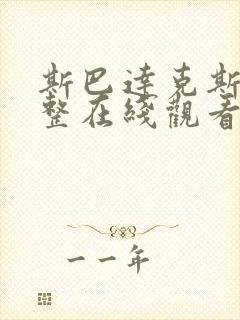 斯巴達克斯
整在綫觀看
一一年